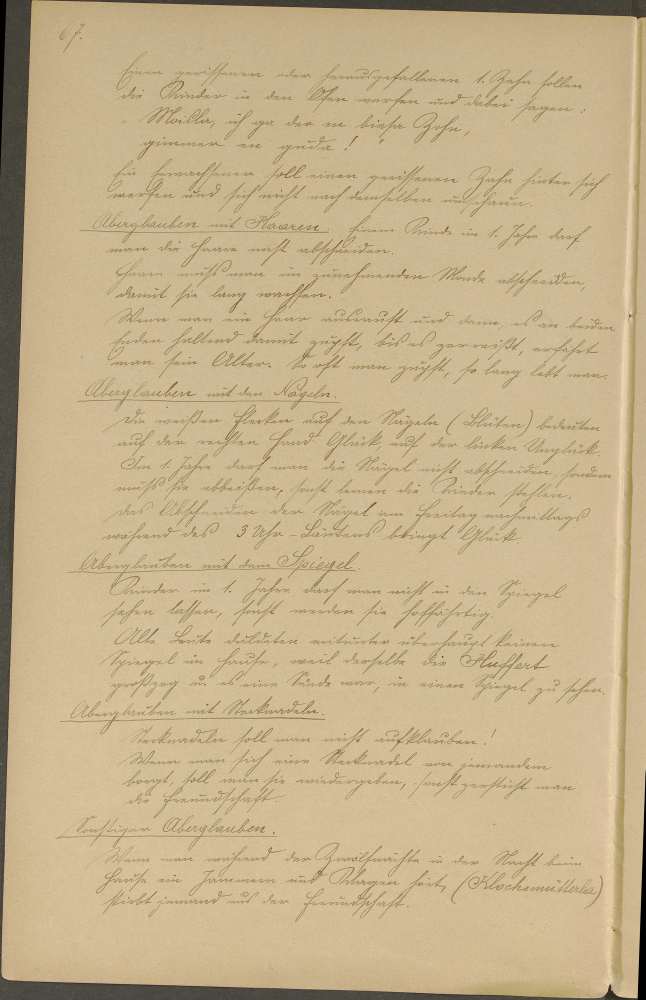 67.
Einen gerissenen oder herausgefallenen 1. Zahn sollen
die Kinder in den Ofen werfen und dabei sagen:
ich ga der en biesa Zohn,
gimmer en guda!"
Ein Erwachsener soll einen gerissenen Zahn hinter sich
werfen und sich nicht nach demselben umschaun.
Aberglauben mit Haaren. Einem Kinde im 1. Jahre darf
man die Haare nicht abschneiden.
Haare muß man im zunehmenden Monde abschneiden,
damit sie lang wachsen.
Wenn man ein Haar ausrauft und dann, es an beiden
Enden haltend damit zupft, bis es zerreißt, erfährt
man sein Alter. So oft man zupft, so lang lebt man.
Aberglauben mit den Nägeln.
Die weißen Flecken auf den Nägeln (Blüten) bedeuten
auf der rechten Hand Glück auf der linken Unglück.
Im 1. Jahre darf man die Nägel nicht abschneiden, sondern
muß sie abbeißen, sonst lernen die Kinder stehlen.
Das Abschneiden der Nägel am Freitag nachmittags
während des 3 Uhr-Läutens bringt Glück.
Aberglauben mit dem Spiegel.
Kinder im 1. Jahre darf man nicht in den Spiegel
sehen lassen, sonst werden sie hoffährtig.
Alte Leute duldeten mitunter überhaupt keinen
Spiegel im Hause, weil derselbe die Huffert
großzog u. es eine Sünde war, in einen Spiegel zu sehen.
Aberglauben mit Stecknadeln.
Stecknadeln soll man nicht aufklauben!
Wenn man sich eine Stecknadel von jemandem
borgt, soll man sie wiedergeben, sonst zersticht man
die Freundschaft.
Sonstiger Aberglauben.
Wenn man während der Zwölfnächte in der Nacht beim
Hause ein Jammern und Klagen hört, (Klochemütterla)
stirbt jemand aus der Freundschaft.